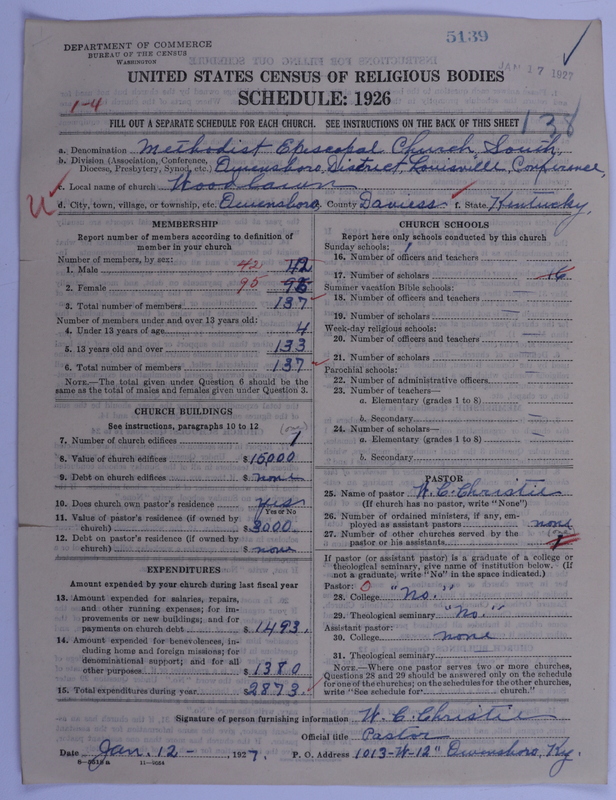 5139
DEPARTMENT OF COMMERCE
BUREAU OF THE CENSUS
WASHINGTON
JAN 17 1927
UNITED STATES CENSUS OF RELIGIOUS BODIES
SCHEDULE: 1926
1-4
138
FILL OUT A SEPARATE SCHEDULE FOR EACH CHURCH. SEE INSTRUCTIONS ON THE BACK OF THIS SHEET
a. Denomination Methodist Episcopal Church, South,
b. Division (Association, Conference, Diocese, Presbytery, Synod, etc.) Owensboro, District, Louisville, Conference,
c. Local name of church Woodlawn
d. City, town, village, or township, etc. Owensboro, County Daviess f. State Kentucky,
MEMBERSHIP
Report number of members according to definition of
member in your church
Number of members, by sex:
1. Male 42 42
2. Female 95 95
3. Total number of members 137
Number of members under and over 13 years old:
4. Under 13 years of age 4
5. 13 years old and over 133
6. Total number of members 137
NOTE.—The total given under Question 6 should be
same as the total of males and females given under Question 3.
CHURCH BUILDINGS
See instructions, paragraphs 10 to 12
7. Number of church edifices (one) 1
8. Value of church edifices $15,000
9. Debt on church edifices $ none
10. Does church own pastor's residence Yes
Yes or No
11. Value of pastor's residence (if owned by
church) $3000.
12. Debt on pastor's residence (if owned by
church) $ none
EXPENDITURES
Amount expended by your church during last fiscal year
13. Amount expended for salaries, repairs,
and other running expenses; for im-
provements or new buildings; and for
payments on church debt $1493.
14. Amount expended for benevolences, in-
cluding home and foreign missions; for
denominational support; and for all
other purposes $1380
15. Total expenditures during year $2873.
CHURCH SCHOOLS
Report here only schools conducted by this church
Sunday schools:
16. Number of officers and teachers
17. Number of scholars 16
Summer vacation Bible schools:
18. Number of officers and teachers
19. Number of scholars
Week-day religious schools:
20. Number of officers and teachers
21. Number of scholars
Parochial schools:
22. Number of administrative officers
23. Number of teachers—
a. Elementary (grades 1 to 8)
b. Secondary
24. Number of scholars—
a. Elementary (grades 1 to 8)
b. Secondary
PASTOR
25. Name of pastor W. C. Christie
(If church has no pastor, write "None")
26. Number of ordained ministers, if any, em-
ployed as assistant pastors none
27. Number of other churches served by the
pastor or his assistants
If pastor (or assistant pastor) is a graduate of a college or
theological seminary, give name of institution below. (If
not a graduate, write "No" in the space indicated.)
Pastor: 0
28. College "No."
29. Theological seminary "No."
Assistant pastor:
30. College none
31. Theological seminary
NOTE.—Where one pastor serves two or more churches,
Questions 28 and 29 should be answered only on the schedule
for one of the churches; on the schedules for the other churches,
write "See schedule for church."
Signature of person furnishing information W. C. Christie
Official title Pastor
Date Jan. 12 - , 1927. P. O. Address 1013-W-12" Owensboro, Ky.
8-5518a 11-9054